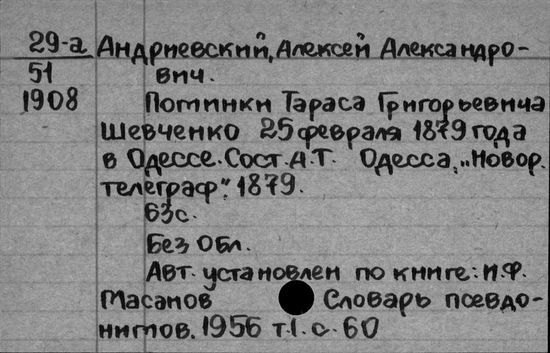 29-а Андриевский, Алексей Александро-
51 вич.
1908 Поминки Тараса Григорьевича
Шевченко 25 февраля 1879 года
в Одессе. Сост. А.Т. Одесса, "Новор.
телеграф". 1879.
63с.
Без обл.
Авт. установлен по книге: И.Ф.
Масанов Словарь псевдо-
нимов. 1956 т.1. с. 60